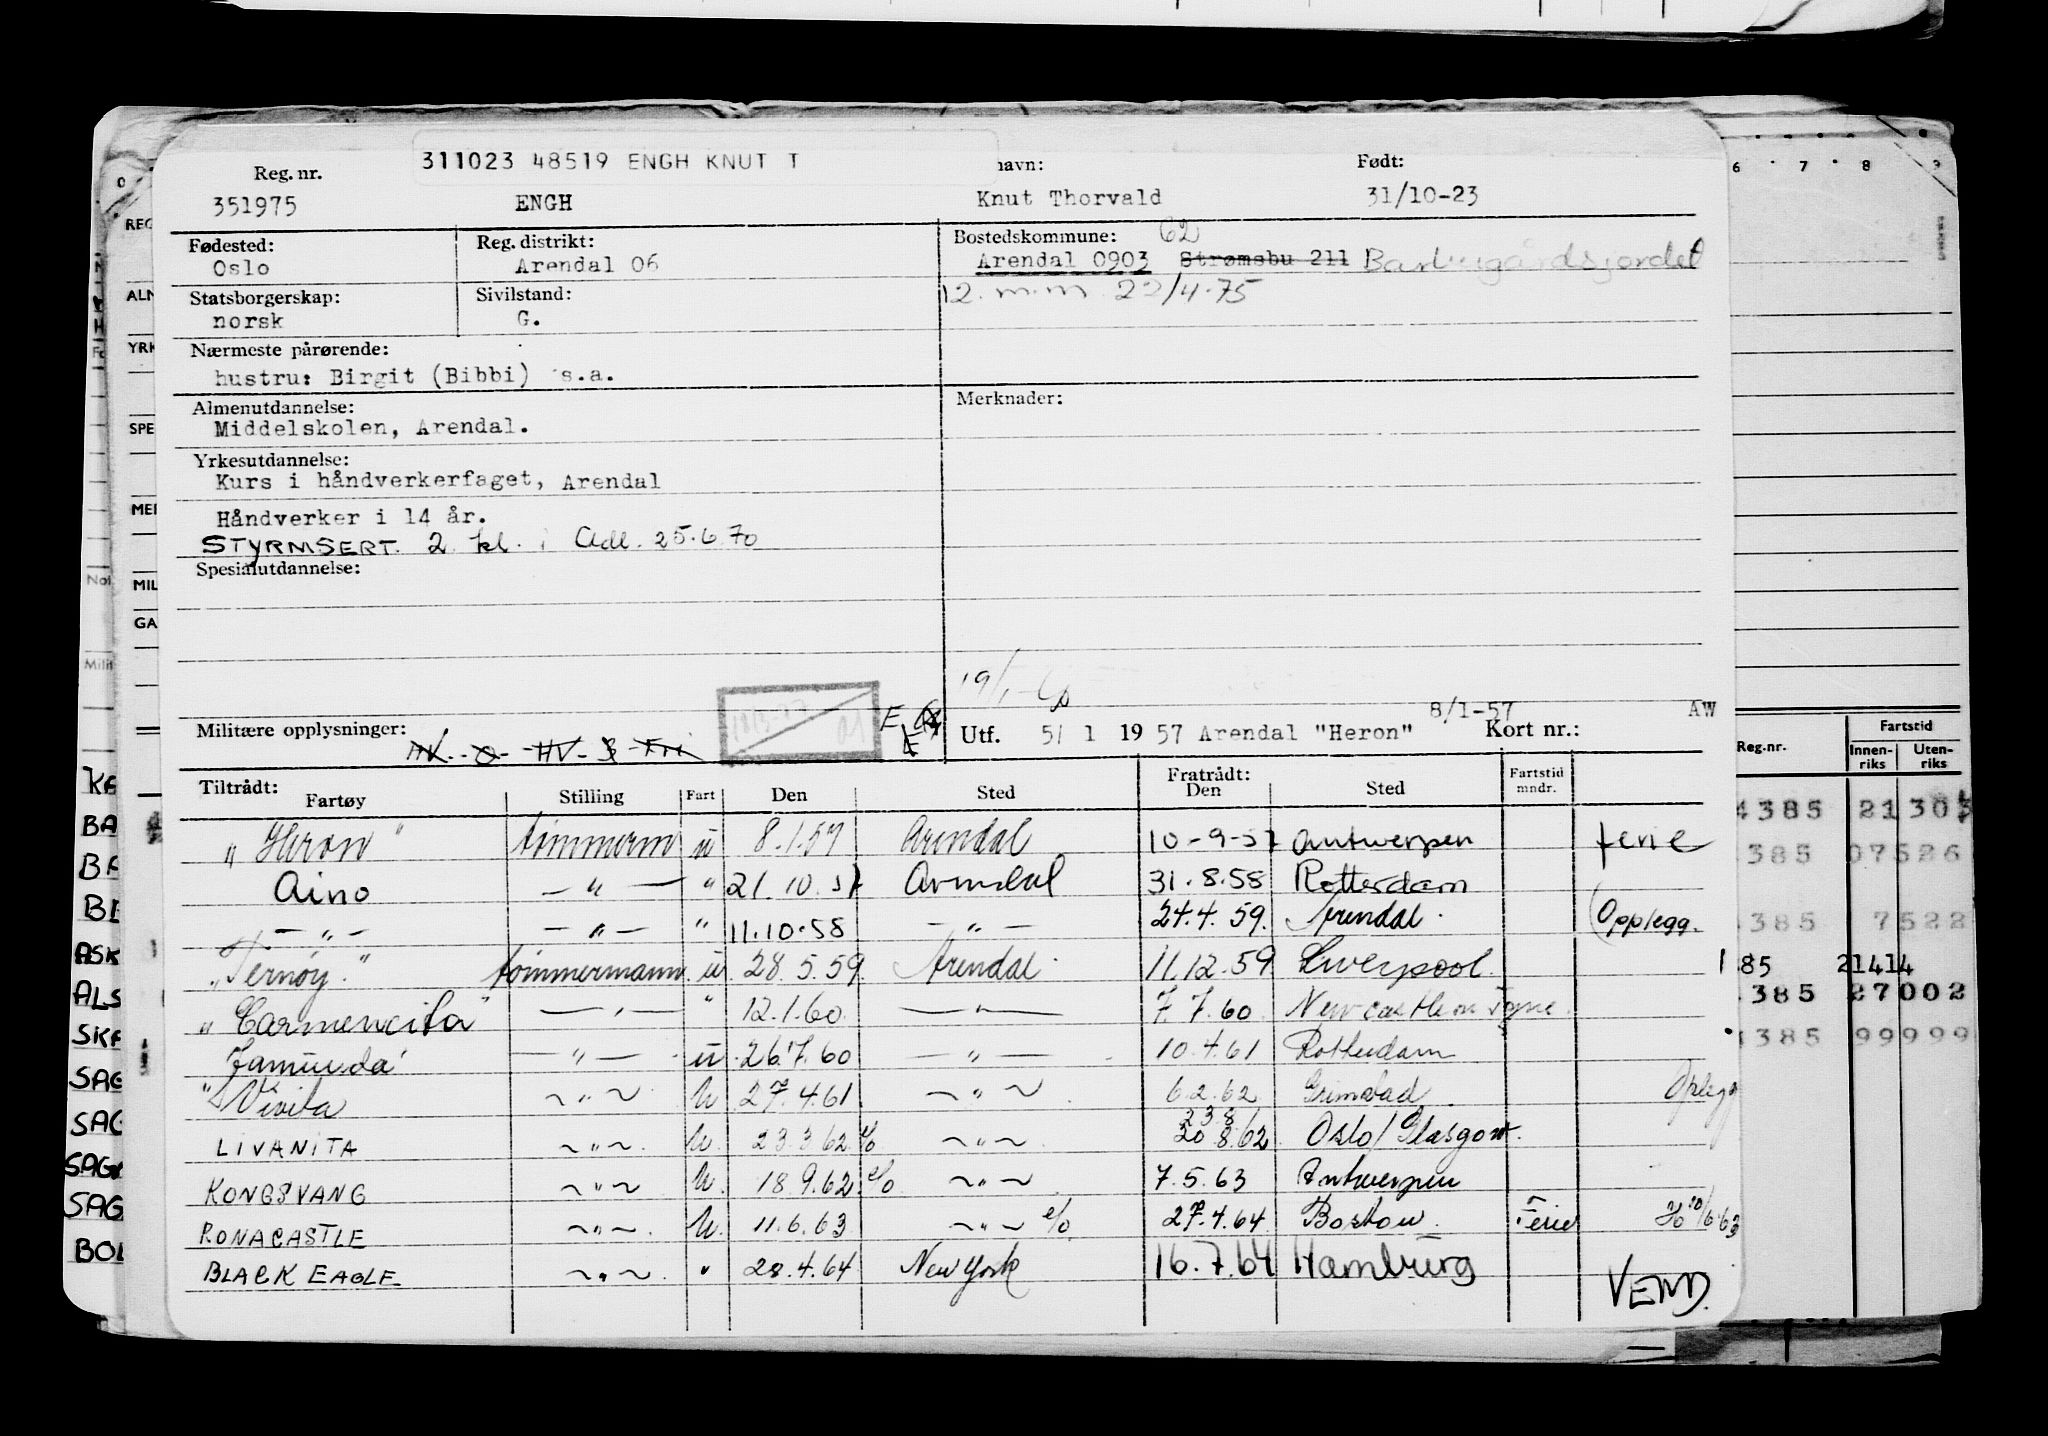 311023 48519 ENGH KNUT T
Reg. nr. navn: Født:
351975 ENGH Knut Thorvald 31/10-23
Fødested: Reg. distrikt: Bostedskommune: 62
Oslo Arendal 06 Arendal 0903 Strømsbu 211 Barbugårdsjordet
Statsborgerskap: Sivilstand: 12. m.m. 22/4-75
norsk G.
Nærmeste pårørende:
hustru: Birgit (Bibbi) s.a.
Almenutdannelse: Merknader:
Middelskolen, Arendal.
Yrkesutdannelse:
Kurs i håndverkerfaget, Arendal
Håndverker i 14 år.
STYRMSERT. 2. kl. i Adl. 25.6.70
Spesialutdannelse:
Militære opplysninger: HV. - O - HV - S - Fri
Utf. 5/ 1 19 57 Arendal "Heron" 8/1-57 Kort nr.: AW
Tiltrådt: Fratrådt:
Fartøy Stilling Fart Den Sted Den Sted Fartstid mndr.
"Heron" tømmerm u 8.1.57 Arendal 10-9-57 Antwerpen ferie
Aino - " - " 21.10.57 Arendal 31.8.58 Rotterdam
- " - - " - " 11.10.58 - " - 24.4.59. Arendal. Opplegg.
"Ternøy." tømmermann u 28.5.59 Arendal. 11.12.59 Liverpool.
"Carmencita" - " - " 12.1.60 - " - 7.7.60 Newcastle on Tyne.
Jamunda - " - u 26.7.60 - " - 10.4.61 Rotterdam
"Vivita ~ " ~ u 27.4.61 ~ " ~ 6.2.62 Grimstad Oplegg
LIVANITA ~ " ~ u. 23.3.62 e/o ~ " ~ 23 8 20.8.62 Oslo/Glasgow.
KONGSVANG ~ " ~ u. 18.9.62 e/o ~ " ~ 7.5.63 Antwerpen
RONACASTLE ~ " ~ u. 11.6.63 ~ " ~ e/o 27.4.64 Boston. Ferie 10/6-63
BLACK EAGLE ~ " ~ " 28.4.64 New York 16.7.64 Hamburg
VEND.
Reg.nr. Fartstid
Innen-riks Uten-riks
4385 21303
385 07526
385 7522
85 21414
385 27002
4385 99999
6 7 8 9
0
REG
ALM
YRK
SPE
MER
MIL
GA
KA
BA
BA
BE
ASK
ALS
SKA
SAG
SAG
SAGA
SAG
BOL